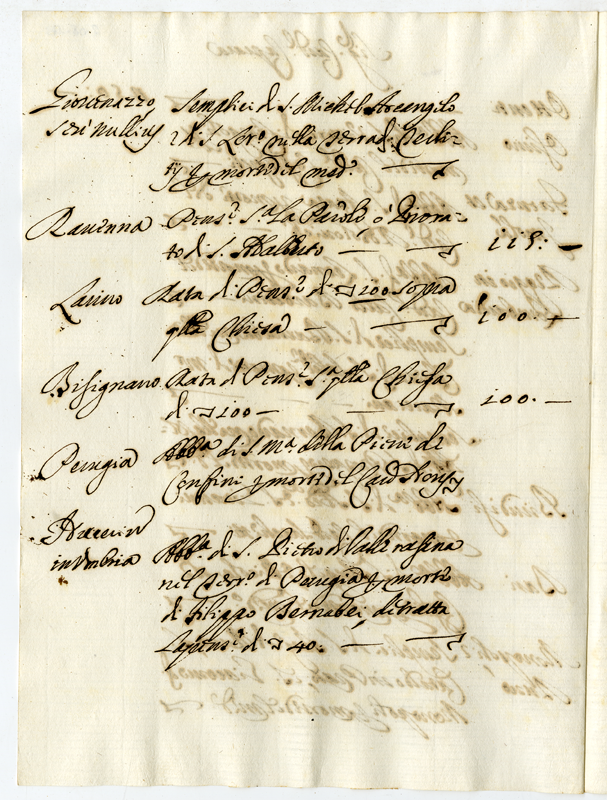 Giovenazzo Semplici di S. Michel Arcangelo
seu nullius e di S. Lor.o nella Terra di
ty p morte del med.o
Ravenna Pens.e S.a La Parole, ò Priora-
to di S. Adalberto — 115: —
Larino Rata di Pens.e di ∇ 100 sopra
q.lla Chiesa — 100. —
Bisignano Rata di Pens.e S.a q.lla Chiesa
di ∇ 100 — 100. —
Perugia Abb.a di S. M.a della Pieve di
Confini p morte del Card
in Umbria Abb.a di S. Pietro di Valle rasina
nel Terr.o di Perugia p morte
di Filippo Bernabei, detratta
La pens.e di ∇ 40: —